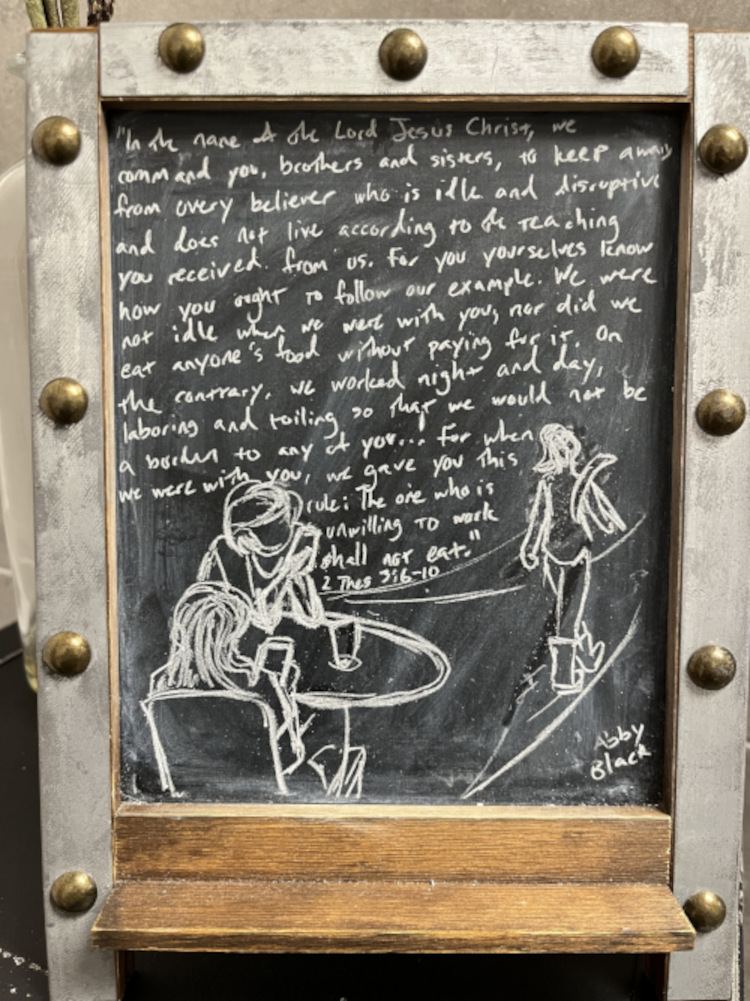 "In the name of the Lord Jesus Christ, we
command you, brothers and sisters, to keep away
from every believer who is idle and disruptive
and does not live according to the teaching
you received from us. For you yourselves know
how you ought to follow our example. We were
not idle when we were with you, nor did we
eat anyone's food without paying for it. On
the contrary, we worked night and day,
laboring and toiling so that we would not be
a burden to any of you... For when
we were with you, we gave you this
rule: The one who is
unwilling to work
shall not eat."
2 Thes 3:6-10
Abby
Black